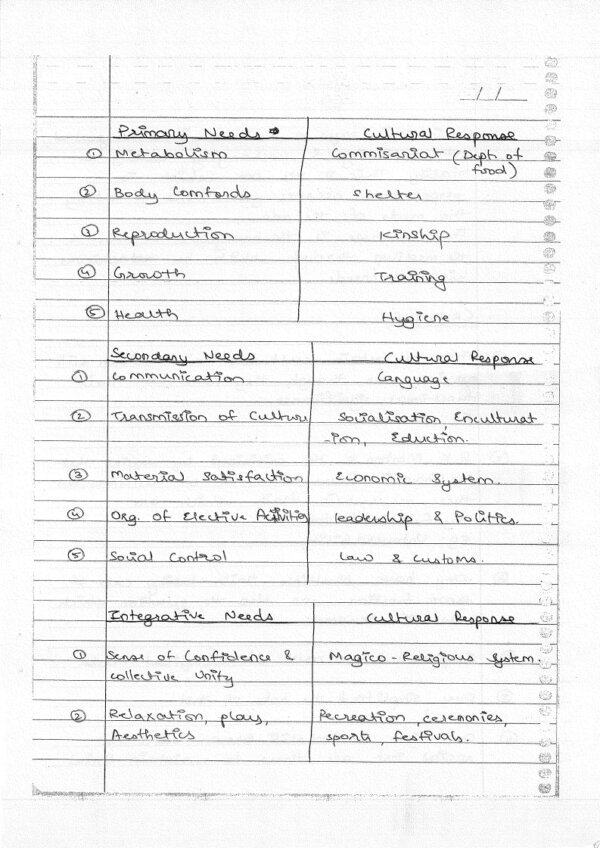 / /
Primary Needs Cultural Response
① Metabolism Commisariat (Dept of food)
② Body Comfords Shelter
③ Reproduction Kinship
④ Growth Training
⑤ Health Hygiene
Secondary Needs Cultural Response
① Communication Language
② Transmission of Culture Socialisation, Enculturat
-ion, Eduction.
③ Material Satisfaction Economic System.
④ Org. of Elective Activities leadership & Politics.
⑤ Social Control Law & Customs.
Integrative Needs Cultural Response
① Sense of Confidence & Magico-Religious System.
collective Unity
② Relaxation, plays, Recreation, ceremonies,
Aesthetics sports, festivals.